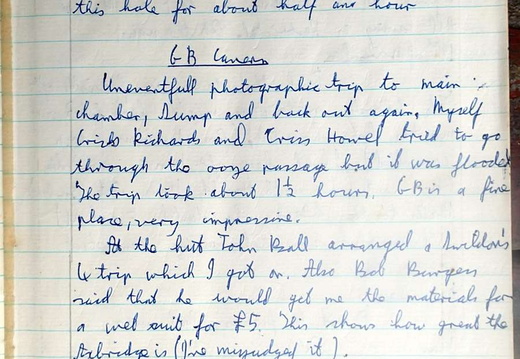 this hole for about half an hour
GB Cavern
Uneventfull photographic trip to main
chamber, Sump and back out again. Myself
Richards and Criss Howel tried to go
through the ooze passage but it was flooded
The trip took about 1½ hours. GB is a fine
place, very impressive.
At the hut John Ball arranged a Swildon's
4 trip which I got on. Also Bob Burgess
said that he would get me the materials for
a wet suit for £5. This shows how great the
Axbridge is (I've missjudged it).